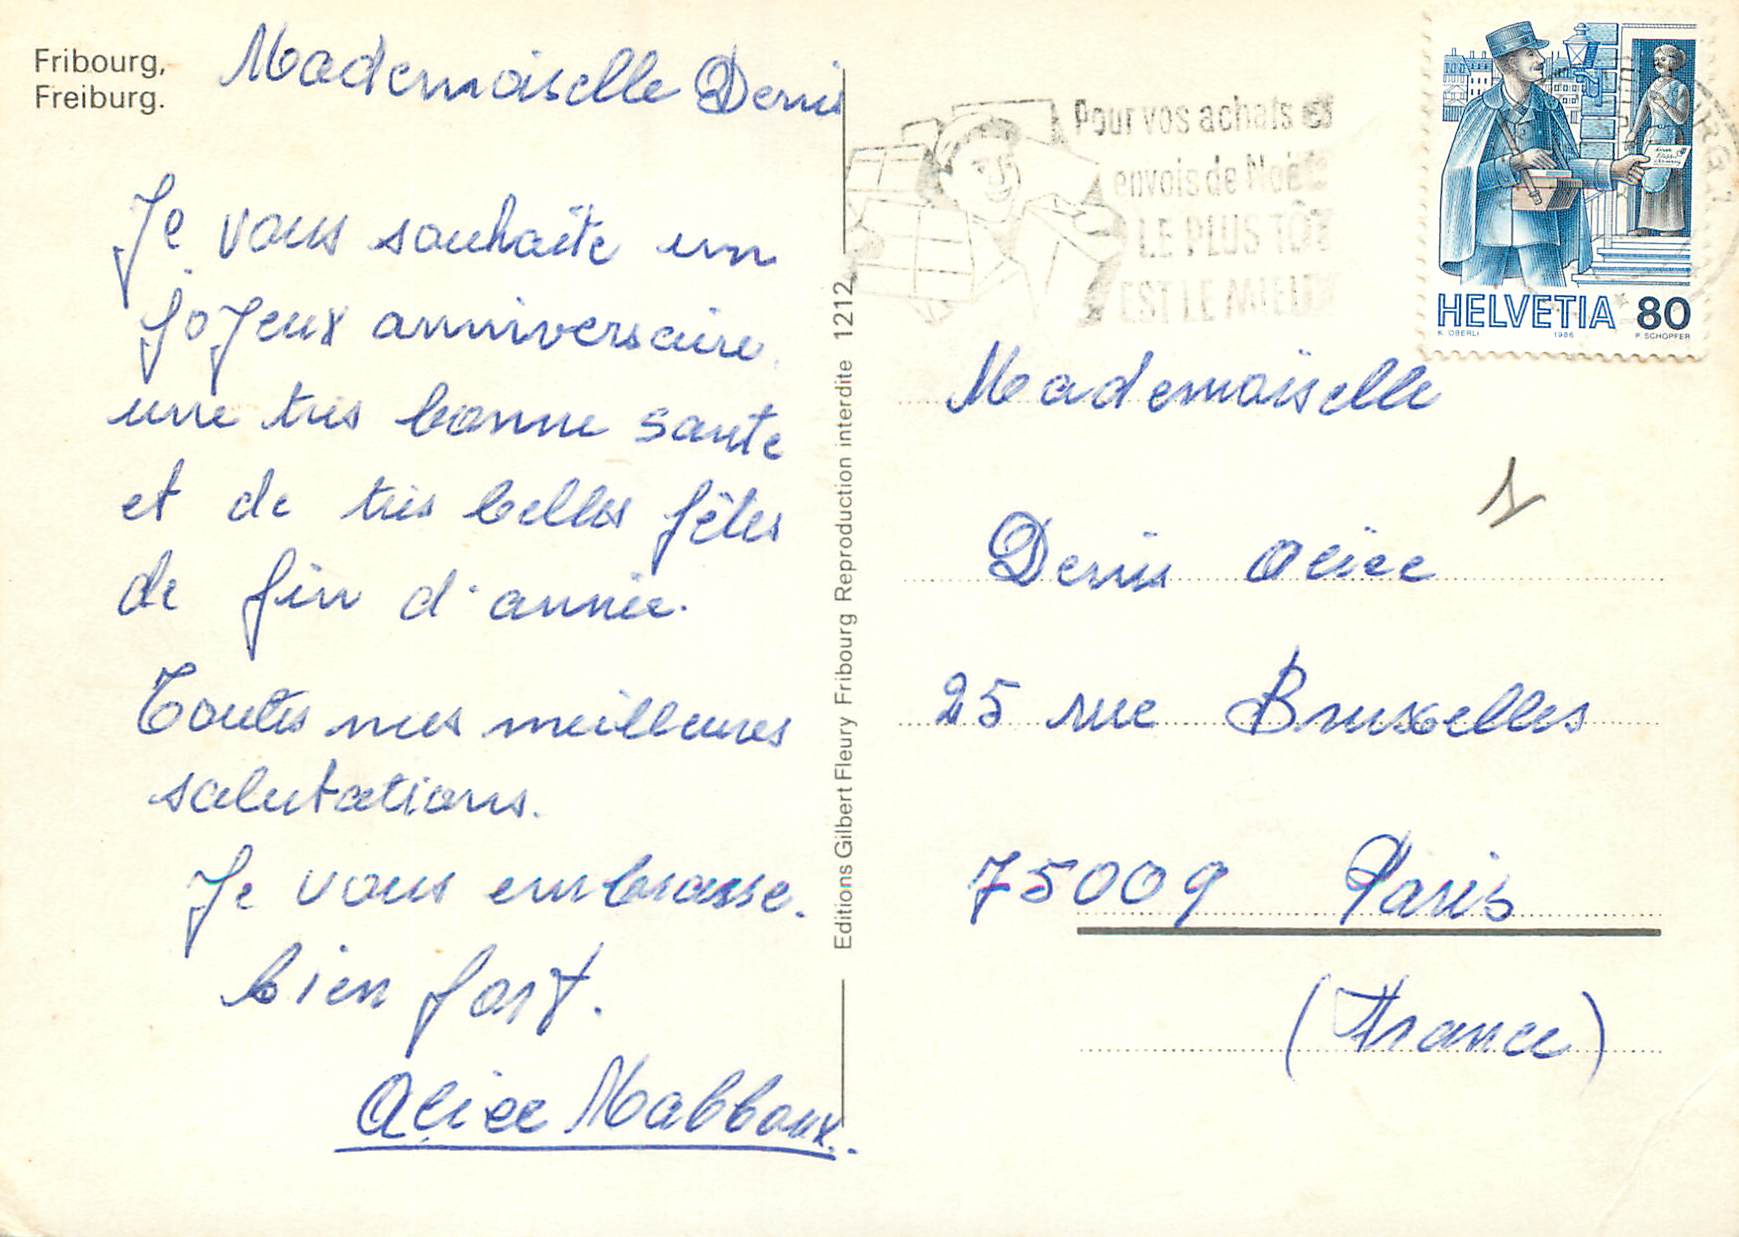 Fribourg,
Freiburg.
Mademoiselle Denis
Je vous souhaite un
joyeux anniversaire,
une très bonne santé
et de très belles fêtes
de fin d'année.
Toutes mes meilleures
salutations.
Je vous embrasse.
bien fort.
Alice Mabboux.
Editions Gilbert Fleury Fribourg Reproduction interdite 1212
Pour vos achats et
envois de Noël
LE PLUS TÔT
EST LE MIEUX
HELVETIA 80
K. OBERLI 1986 P. SCHOPFER
Mademoiselle
Denis Alice
25 rue Bruxelles
75009 Paris
(France)